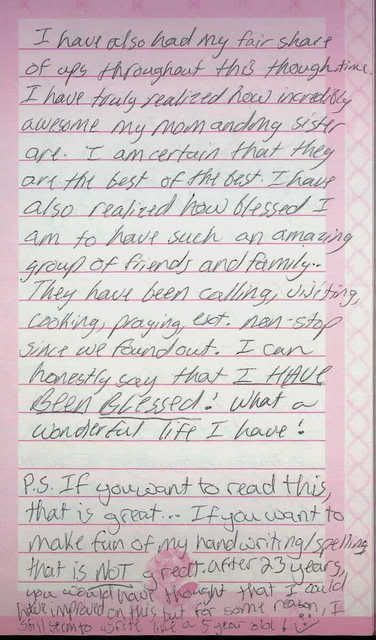 I have also had my fair share
of ups throughout this though time.
I have truly realized how incredibly
awesome my mom and my sister
are. I am certain that they
are the best of the best. I have
also realized how blessed I
am to have such an amazing
group of friends and family..
They have been calling, visiting,
cooking, praying, ect. non-stop
since we found out. I can
honestly say that I HAVE
BEEN BLESSED! What a
wonderful life I have!
P.S. If you want to read this,
that is great... If you want to
make fun of my handwriting/spelling
that is NOT great. after 23 years,
you would have thought that I could
have improved on this but for some reason, I
still seem to write like a 5 year old!